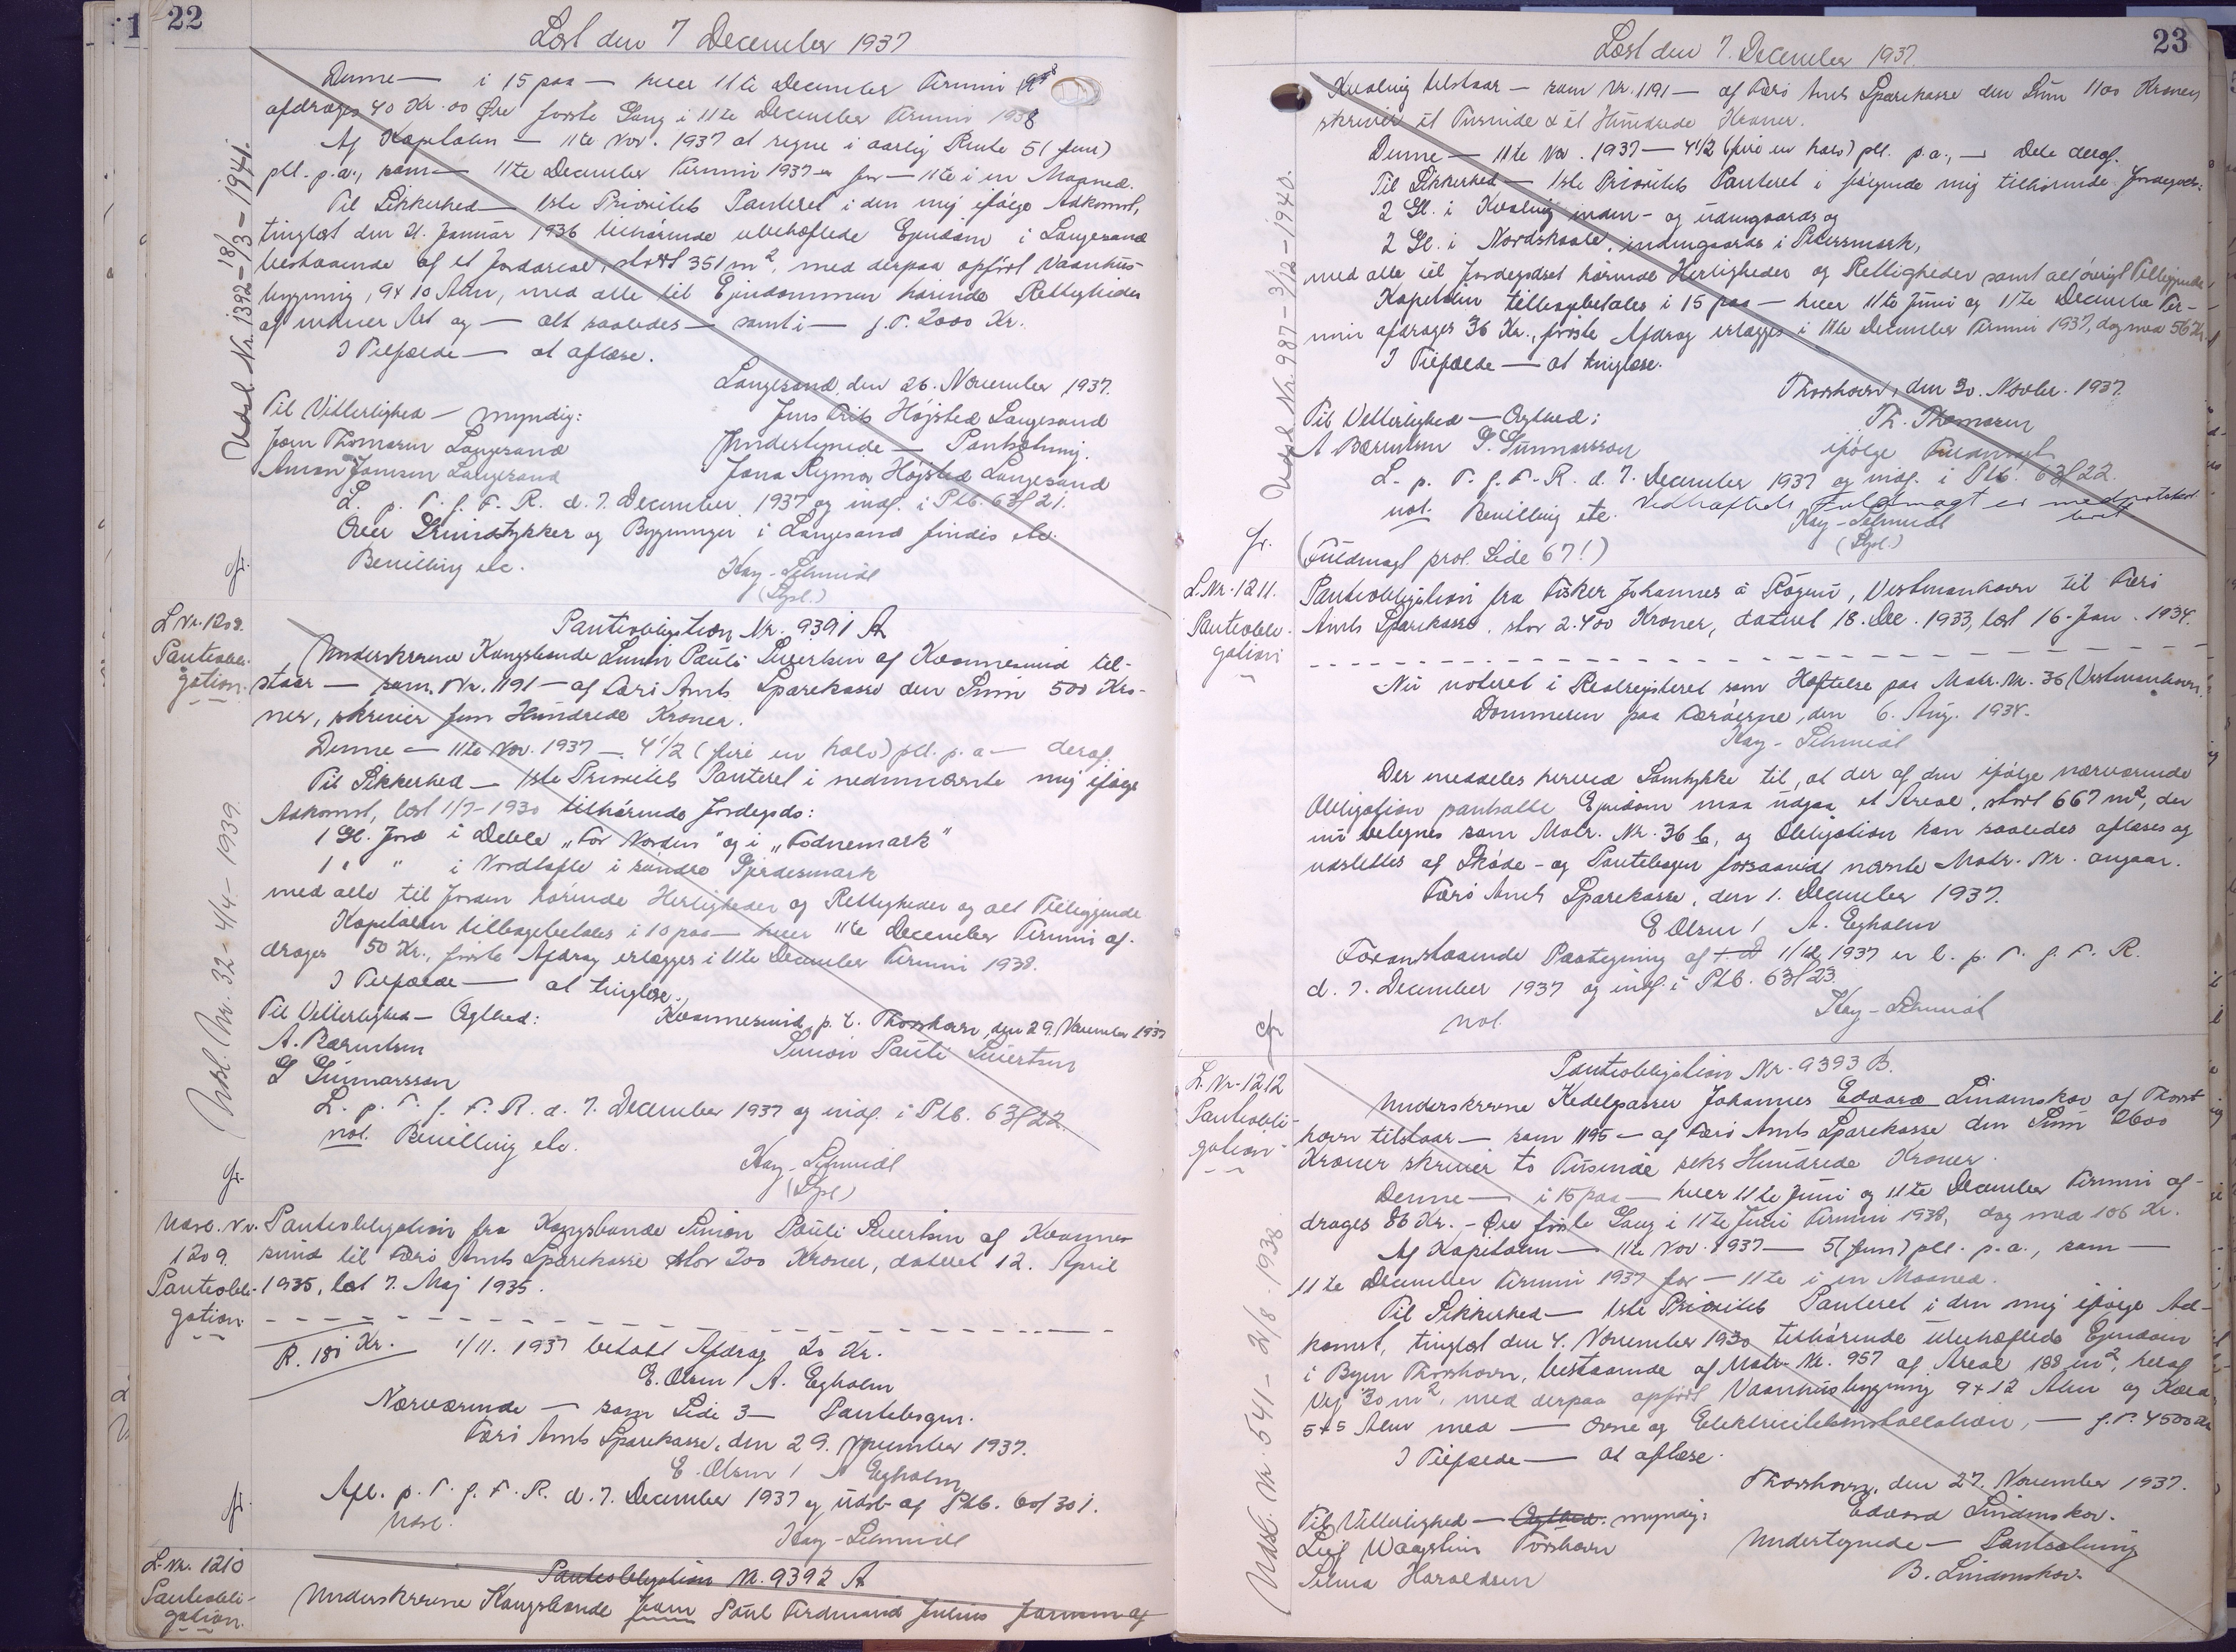 22
Læst den 7 December 1937
Denne — i 15 paa — hver 11te December Termin
afdrages 40 Kr. 00 Øre første Gang i 11te December Termin 1938
Af Kapitalen — 11te Nov. 1937 at regne i aarlig Rente 5 (fem)
pCt. p.a., som — 11te December Termin 1937 — for — 11te i en Maaned.
Til Sikkerhed — 1ste Prioritets Panteret i den mig ifølge Adkomst,
tinglæst den 21. Januar 1936 tilhørende ubehæftede Ejendom i Langesand
bestaaende af et Jordareal, stort 351 m², med derpaa opført Vaanhus-
bygning, 9 x 10 Alen, med alle til Ejendommen hørende Rettigheder
af enhver Art og — alt saaledes — samt i — f. T. 2000 Kr.
I Tilfælde — at aflæse.
Langesand, den 26. November 1937.
Til Vitterlighed — myndig:
Jens Frits Højsted Langesand
Joen Thomsen Langesand
Undertegnede — Pantsætning.
Langesand
Jana Regmor Højsted Langesand
L. p. T. f. F. R. d. 7. December 1937 og indf. i Ptb. 63/21.
Over Grundstykker og Bygninger i Langesand findes etc.
Bevilling etc.
Kay-Schmidt
(Spl.)
Udsl. Nr. 1392 - 18/3 - 1941.
fr.
L. Nr. 1208.
Panteobli-
gation.
Panteobligation Nr. 9391 A
Underskrevne Kongsbonde Simon Pauli Sivertsen af Kvannesund til-
staar — som Nr. 1191 — af Færø Amts Sparekasse den Sum 500 Kro-
ner, skriver fem Hundrede Kroner.
Denne — 11te Nov. 1937 — 4 1/2 (fire en halv) pCt. p. a — deraf.
Til Sikkerhed — 1ste Prioritets Panteret i nedennævnte mig ifølge
Adkomst, læst 1/7-1930 tilhørende Jordegods:
1 Gl. Jord i Deble „For Norden" og i „Fodnemark"
1 " " i Nordtofte i søndre Gjerdesmark
med alle til Jorden hørende Herligheder og Rettigheder og alt Tilliggende
Kapitalen tilbagebetales i 10 paa — hver 11te December Termin af-
drages 50 Kr., første Afdrag erlægges i 11te December Termin 1938.
I Tilfælde — at tinglæse.
Til Vitterlighed — Ægthed:
Kvannesund, p. t. Thorshavn, den 29. November 1937
A. Bærentsen
Simon Pauli Sivertsen
G Gunnarsson
L. p. T. f. F. R. d. 7. December 1937 og indf. i Ptb. 63/22.
not. Bevilling etc.
Kay-Schmidt
(Spl.)
Udsl. Nr. 32 - 4/4 - 1939.
fr.
Udsl. Nr.
1209.
Panteobli-
gation.
Panteobligation fra Kongsbonde Simon Pauli Sivertsen af Kvanne-
sund til Færø Amts Sparekasse stor 200 Kroner, dateret 12. April
1935, læst 7. Maj 1935.
R. 180 Kr. 1/11. 1937 betalt Afdrag 20 Kr.
E. Olsen / A. Egholm
Nærværende — som Side 3 — Pantebogen.
Færø Amts Sparekasse, den 29. November 1937.
E. Olsen / A Egholm
Afl. p. T. f. F. R. d. 7. December 1937 og udsl. af Ptb. 60/301.
Udsl.
Kay-Schmidt
fr.
L. Nr. 1210
Panteobli-
gation.
Panteobligation Nr. 9392 A
Underskrevne Kongsbonde Joen Poul Ferdinand Julius Joensen af
23
Læst den 7. December 1937.
Kvalvig tilstaar — som Nr. 1191 — af Færø Amts Sparekasse den Sum 1100 Kroner
skriver et Tusinde & et Hundrede Kroner.
Denne — 11te Nov. 1937 — 4 1/2 (fire en halv) pCt. p.a., — Dele deraf.
Til Sikkerhed — 1ste Prioritets Panteret i følgende mig tilhørende Jordegods:
2 Gl. i Kvalvig inden- og udengaards og
2 Gl. i Nordskaale, indengaards i Peersmark,
med alle til Jordegodset hørende Herligheder og Rettigheder samt alt øvrigt Tilliggende
Kapitalen tilbagebetales i 15 paa — hver 11te Juni og 11te December Ter-
min afdrages 36 Kr., første Afdrag erlægges i 11te December Termin 1937, dog med 56 Kr.
I Tilfælde — at tinglæse.
Thorshavn, den 30. Novbr. 1937.
Til Vitterlighed — Ægthed:
Th. Thomsen
A Bærentsen G. Gunnarsson
ifølge Fuldmagt
L. p. T. f. F. R. d. 7. December 1937 og indf. i Ptb. 63/22.
not. Bevilling etc. Vedhæftede Fuldmagt er medprotokol-
leret
Kay-Schmidt
(Spl.)
(Fuldmagt prot. Side 67!)
Udsl. Nr. 987 - 3/12 - 1940.
fr.
L. Nr. 1211.
Panteobli-
gation
Panteobligation fra Fisker Johannes á Rógvu, Vestmanhavn til Færø
Amts Sparekasse, stor 2.400 Kroner, dateret 18. Dec. 1933, læst 16. Jan. 1934.
Nu noteret i Realregisteret som Hæftelse paa Matr. Nr. 36 Vestmanhavn.
Dommeren paa Færøerne, den 6. Aug. 1934.
Kay-Schmidt
Der meddeles herved Samtykke til, at der af den ifølge nærværende
Obligation pantsatte Ejendom maa udgaa et Areal, stort 667 m², der
nu betegnes som Matr. Nr. 36 b, og Obligation kan saaledes aflæses og
udslettes af Skøde- og Pantebogen forsaavidt nævnte Matr. Nr. angaar.
Færø Amts Sparekasse, den 1. December 1937.
E Olsen / A. Egholm
Foranstaaende Paategning af 1/12 1937 er l. p. T. f. F. R.
d. 7. December 1937 og indf. i Ptb. 63/23.
not.
Kay-Schmidt
fr
L. Nr. 1212
Panteobli-
gation
Panteobligation Nr. 9393 B.
Underskrevne Kedelpasser Johannes Edvard Lindenskov af Thors-
havn tilstaar — som 1195 — af Færø Amts Sparekasse den Sum 2600
Kroner skriver to Tusinde seks Hundrede Kroner.
Denne — i 15 paa — hver 11te Juni og 11te December Termin af-
drages 86 Kr. - Øre første Gang i 11te Juni Termin 1938, dog med 106 Kr.
Af Kapitalen — 11te Nov. 1937 — 5 (fem) pCt. p.a., som —
11te December Termin 1937 for — 11te i en Maaned.
Til Sikkerhed — 1ste Prioritets Panteret i den mig ifølge Ad-
komst, tinglæst den 4. November 1930 tilhørende ubehæftede Ejendom
i Byen Thorshavn, bestaaende af Matr. Nr. 957 af Areal 188 m², heraf
Vej 30 m², med derpaa opført Vaanhusbygning 9 x 12 Alen og
5 x 5 Alen med — Ovne og Elektricitetsinstallation, — f. T. 4500 Kr
I Tilfælde — at aflæse.
Thorshavn, den 27. November 1937.
Til Vitterlighed — Ægthed. myndig:
Edvard Lindenskov.
Leif Waagstein Torshavn
Undertegnede — Pantsætning
Selma Haraldsen
B. Lindenskov.
Udsl. Nr. 541 - 2/8 1938.